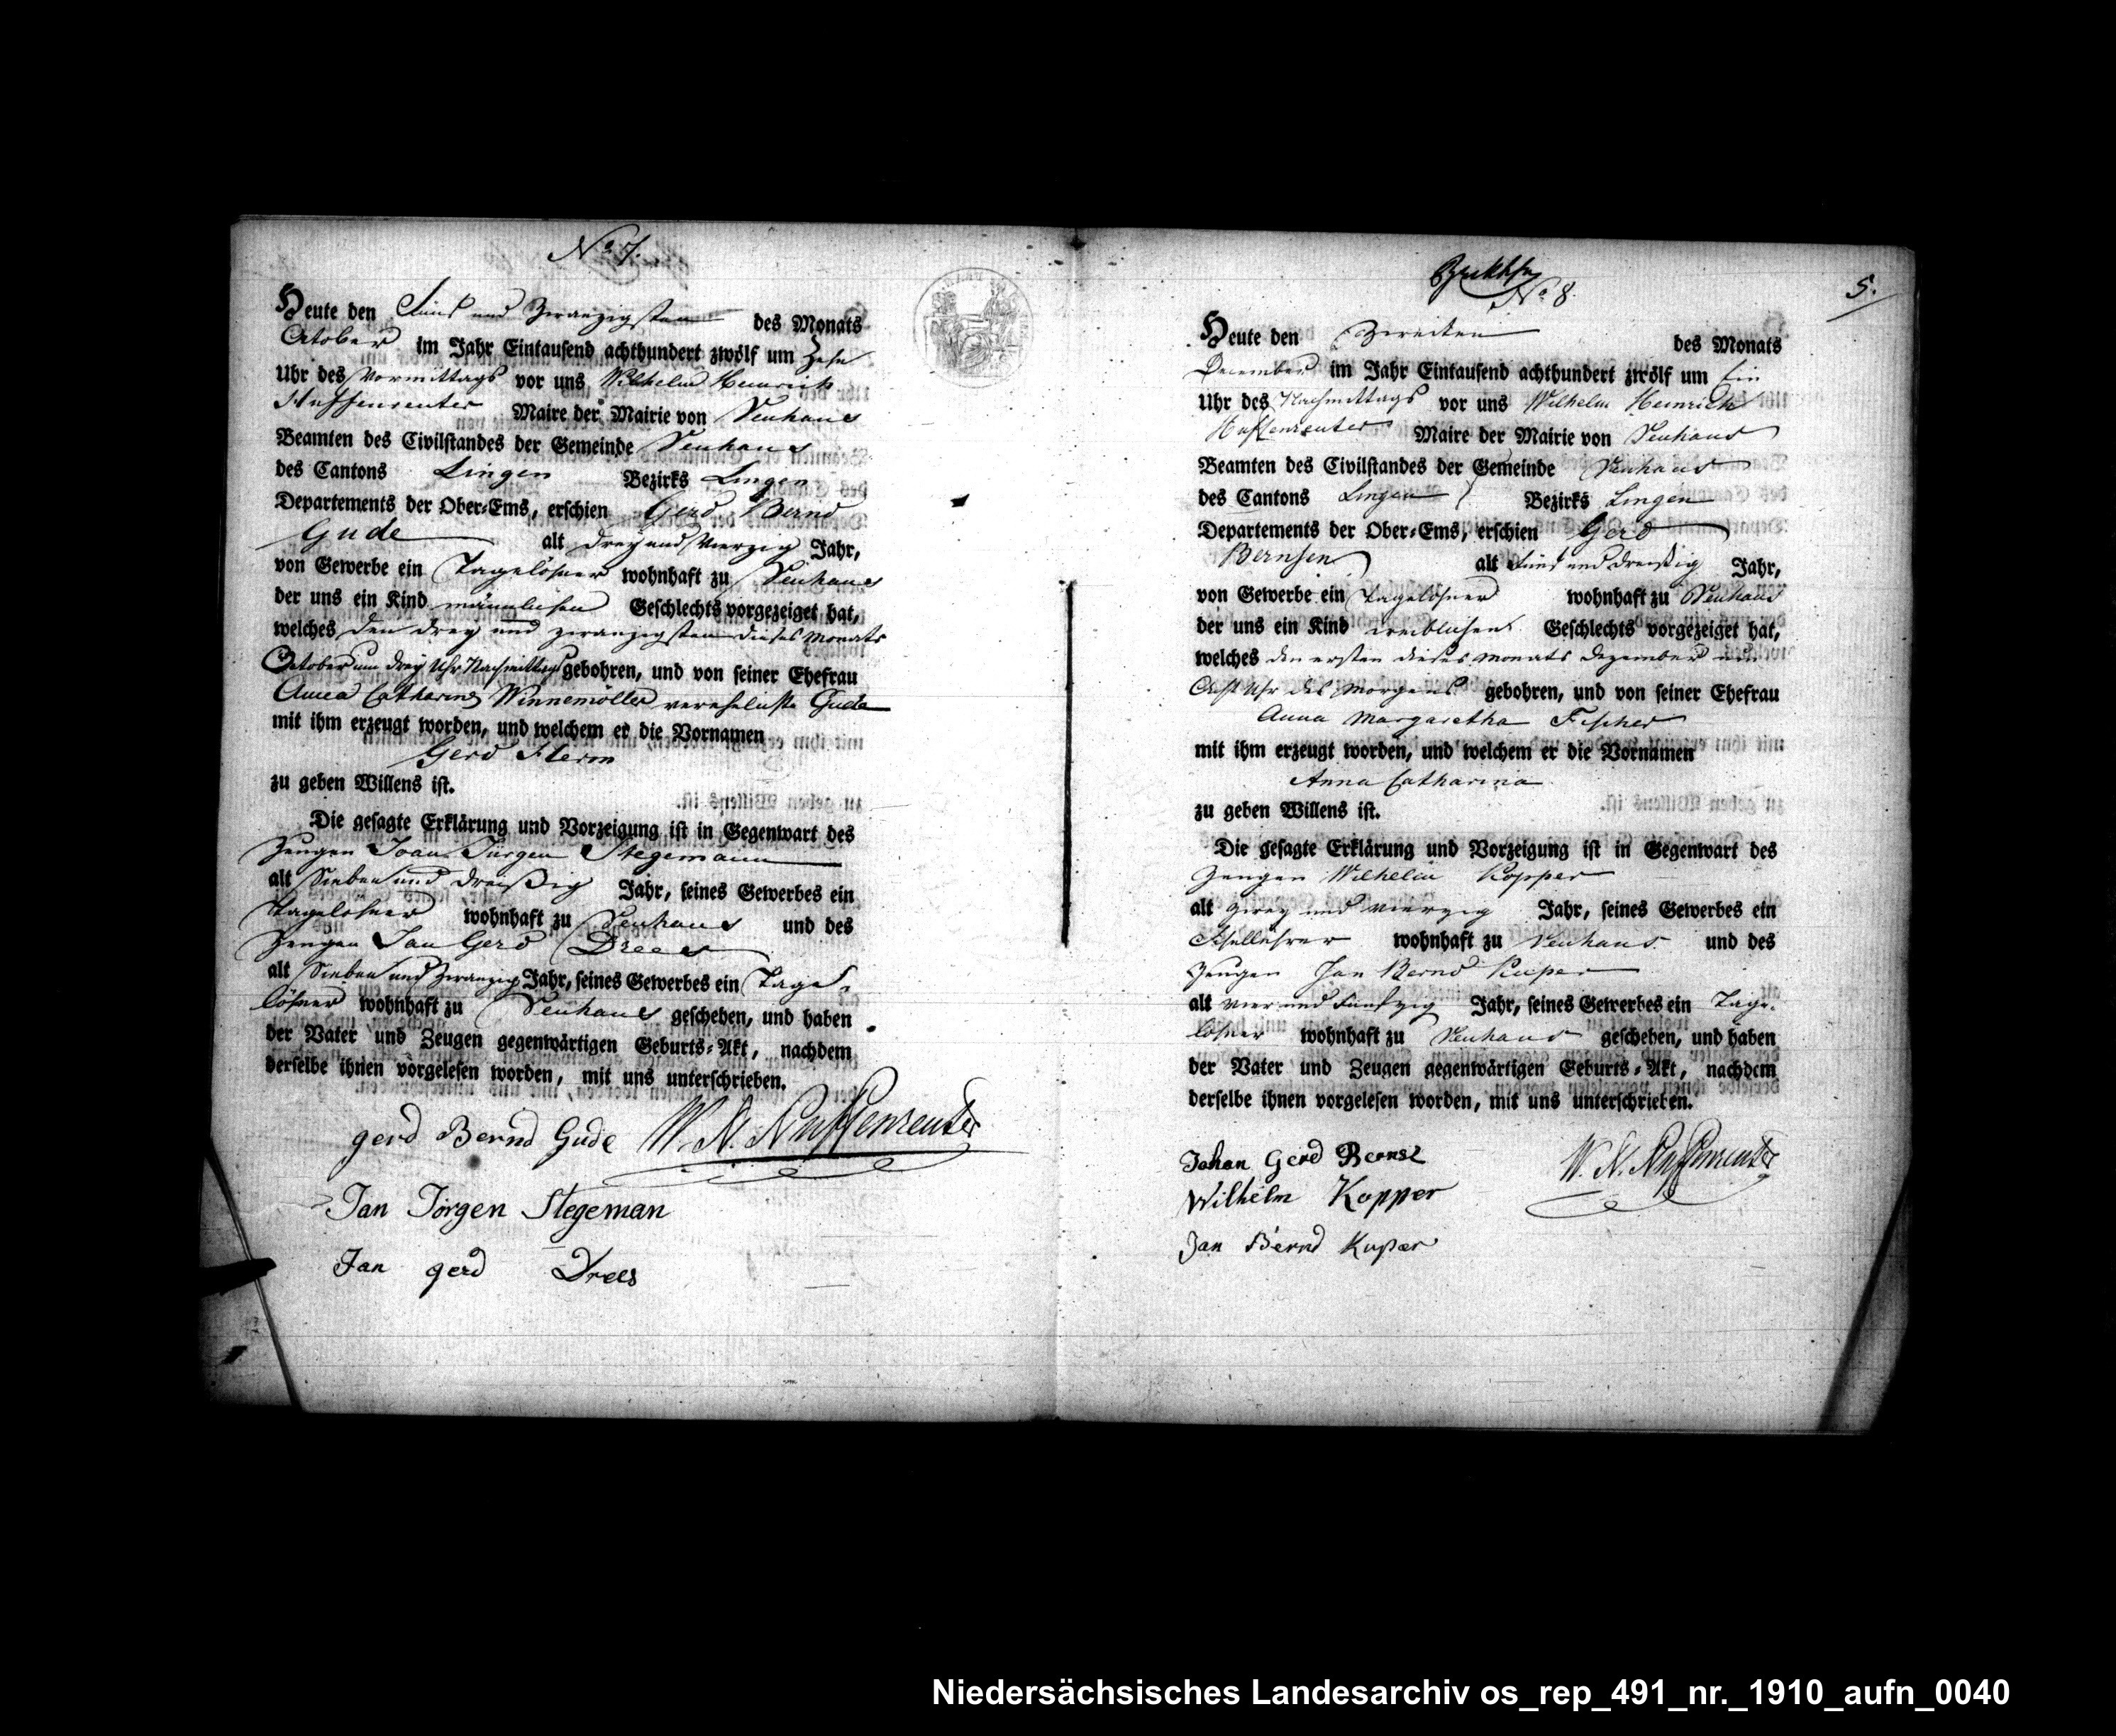 No 7.
Heute den Fünf und Zwanzigsten des Monats
October im Jahr Eintausend achthundert zwölf um Zehn
Uhr des Vormittags vor uns Wilhelm Heinrich
Nuffenreuter Maire der Mairie von Venhaus
Beamten des Civilstandes der Gemeinde Venhaus
des Cantons Lingen Bezirks Lingen
Departements der Ober-Ems, erschien Gerd Bernd
Gude alt drey und Vierzig Jahr,
von Gewerbe ein Tagelöhner wohnhaft zu Venhaus
der uns ein Kind männlichen Geschlechts vorgezeiget hat,
welches den drey und zwanzigsten dieses Monats
October um drey Uhr Nachmittags gebohren, und von seiner Ehefrau
Anna Catharina Winnemöller verehelichte Gude
mit ihm erzeugt worden, und welchem er die Vornamen
Gerd Herm
zu geben Willens ist.
Die gesagte Erklärung und Vorzeigung ist in Gegenwart des
Zeugen Joan Jürgen Stegemann
alt Sieben und dreißig Jahr, seines Gewerbes ein
Tagelöhner wohnhaft zu Venhaus und des
Zeugen Jan Gerd Drees
alt Sieben und Zwanzig Jahr, seines Gewerbes ein Tage-
löhner wohnhaft zu Venhaus geschehen, und haben
der Vater und Zeugen gegenwärtigen Geburts-Akt, nachdem
derselbe ihnen vorgelesen worden, mit uns unterschrieben.
gerd Bernd Gude W. H. Nuffenreuter
Jan Jörgen Stegeman
Jan gerd Drees
No 8. 5.
Heute den Zweiten des Monats
December im Jahr Eintausend achthundert zwölf um Ein
Uhr des Nachmittags vor uns Wilhelm Heinrich
Nuffenreuter Maire der Mairie von Venhaus
Beamten des Civilstandes der Gemeinde Venhaus
des Cantons Lingen Bezirks Lingen
Departements der Ober-Ems, erschien Gerd
Bernsen alt Fünf und dreißig Jahr,
von Gewerbe ein Tagelöhner wohnhaft zu Venhaus
der uns ein Kind weiblichen Geschlechts vorgezeiget hat,
welches den ersten dieses Monats Dezember um
Acht Uhr des Morgens gebohren, und von seiner Ehefrau
Anna Margaretha Fischer
mit ihm erzeugt worden, und welchem er die Vornamen
Anna Catharina
zu geben Willens ist.
Die gesagte Erklärung und Vorzeigung ist in Gegenwart des
Zeugen Wilhelm Kopper
alt zwey und vierzig Jahr, seines Gewerbes ein
Schullehrer wohnhaft zu Venhaus und des
Zeugen Jan Bernd Kuper
alt vier und Funfzig Jahr, seines Gewerbes ein Tage-
löhner wohnhaft zu Venhaus geschehen, und haben
der Vater und Zeugen gegenwärtigen Geburts-Akt, nachdem
derselbe ihnen vorgelesen worden, mit uns unterschrieben.
Johan Gerd W. H. Nuffenreuter
Wilhelm Kopper
Jan Bernd Kuper
Niedersächsisches Landesarchiv os_rep_491_nr._1910_aufn_0040